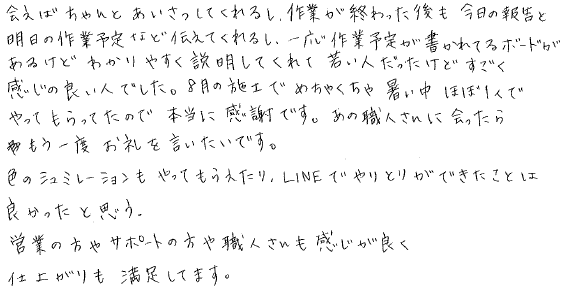 会えばちゃんとあいさつしてくれるし、作業が終わった後も今日の報告と
明日の作業予定など伝えてくれるし、一応作業予定が書かれてるボードが
あるけどわかりやすく説明してくれて若い人だったけどすごく
感じの良い人でした。8月の施工でめちゃくちゃ暑い中ほぼ1人で
やってもらってたので本当に感謝です。あの職人さんに会ったら
もう一度お礼を言いたいです。
色のシュミレーションもやってもらえたり、LINEでやりとりができたことは
良かったと思う。
営業の方やサポートの方や職人さんも感じが良く
仕上がりも満足してます。